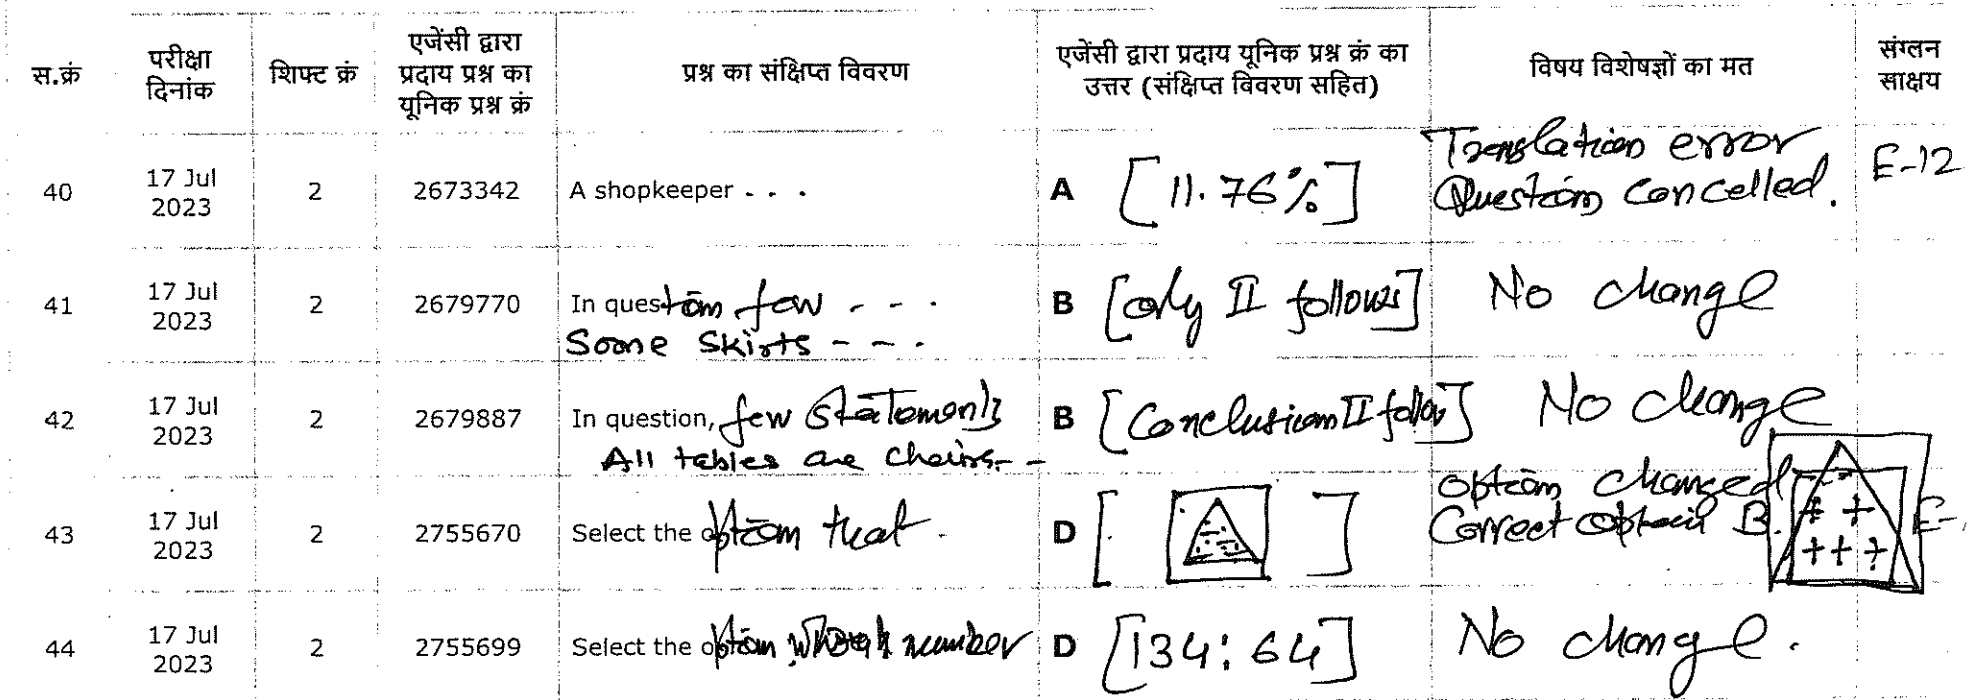 स.क्रं परीक्षा दिनांक शिफ्ट क्रं एजेंसी द्वारा प्रदाय प्रश्न का यूनिक प्रश्न क्रं प्रश्न का संक्षिप्त विवरण एजेंसी द्वारा प्रदाय यूनिक प्रश्न क्रं का उत्तर (संक्षिप्त विवरण सहित) विषय विशेषज्ञों का मत संग्लन साक्षय
40 17 Jul 2023 2 2673342 A shopkeeper - - - A [11.76%] Translation error Question cancelled. E-12
41 17 Jul 2023 2 2679770 In question few - - - Some Skirts - - - B [only II follows] No change
42 17 Jul 2023 2 2679887 In question, few statements All tables are chairs - - B [Conclusion II follow] No change
43 17 Jul 2023 2 2755670 Select the option that - D [ ] option changed Correct option B. E-
44 17 Jul 2023 2 2755699 Select the option which number D [134:64] No change.